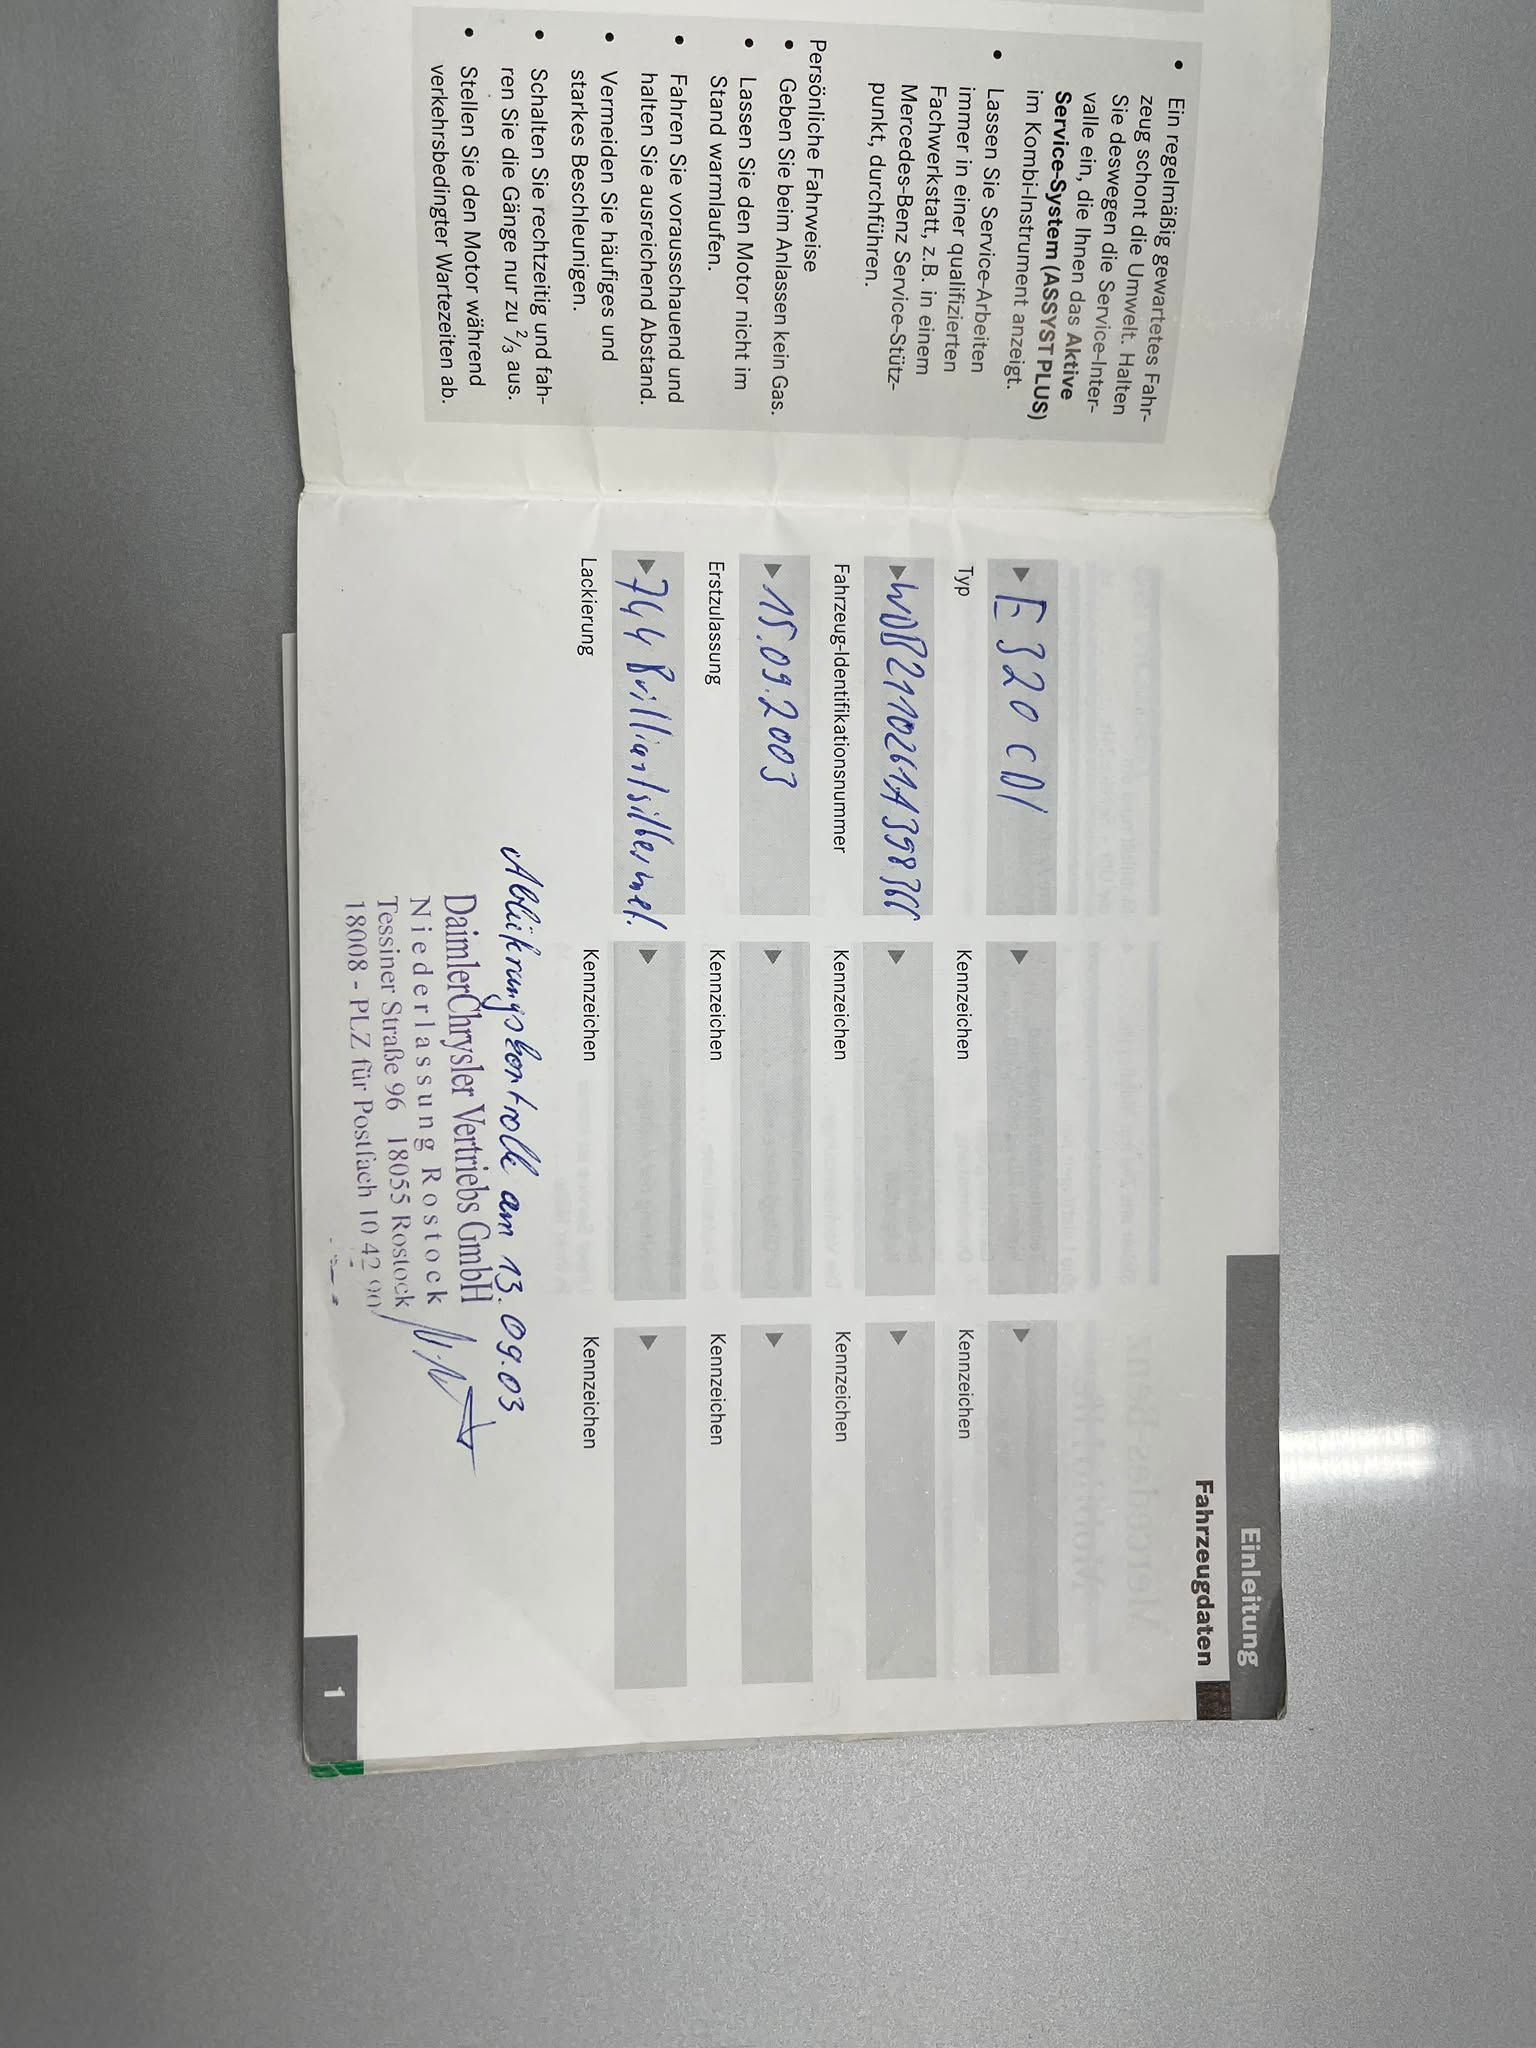 • Ein regelmäßig gewartetes Fahr-
zeug schont die Umwelt. Halten
Sie deswegen die Service-Inter-
valle ein, die Ihnen das Aktive
Service-System (ASSYST PLUS)
im Kombi-Instrument anzeigt.
• Lassen Sie Service-Arbeiten
immer in einer qualifizierten
Fachwerkstatt, z.B. in einem
Mercedes-Benz Service-Stütz-
punkt, durchführen.
Persönliche Fahrweise
• Geben Sie beim Anlassen kein Gas.
• Lassen Sie den Motor nicht im
Stand warmlaufen.
• Fahren Sie vorausschauend und
halten Sie ausreichend Abstand.
• Vermeiden Sie häufiges und
starkes Beschleunigen.
• Schalten Sie rechtzeitig und fah-
ren Sie die Gänge nur zu 2/3 aus.
• Stellen Sie den Motor während
verkehrsbedingter Wartezeiten ab.
Einleitung
Fahrzeugdaten
E 320 CDI
Typ Kennzeichen Kennzeichen
WDB2110261A398366
Fahrzeug-Identifikationsnummer Kennzeichen Kennzeichen
15.09.2003
Erstzulassung Kennzeichen Kennzeichen
744 Brillantsilbermet.
Lackierung Kennzeichen Kennzeichen
am 13.09.03
DaimlerChrysler Vertriebs GmbH
Niederlassung Rostock
Tessiner Straße 96 18055 Rostock
18008 - PLZ für Postfach 10 42 90
1